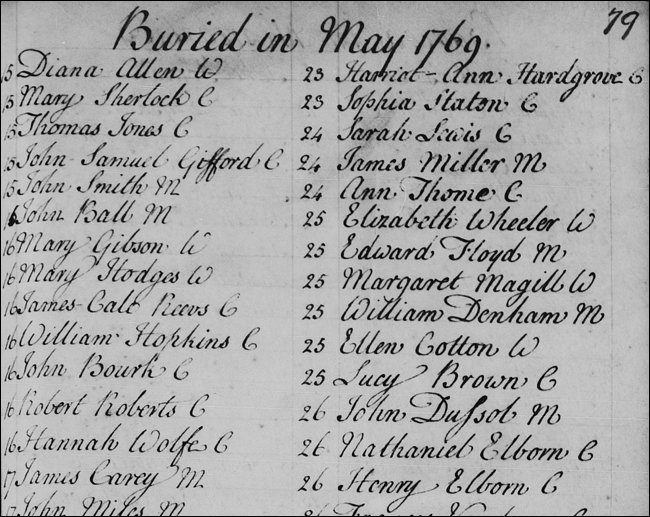 79
Buried in May 1769.
15 Diana Allen W
15 Mary Sherlock C
15 Thomas Jones C
15 John Samuel Gifford C
15 John Smith M
16 John Ball M
16 Mary Gibson W
16 Mary Hodges W
16 James Calt Reevs C
16 William Hopkins C
16 John Bourk C
16 Robert Roberts C
16 Hannah Wolfe C
17 James Carey M
17 John Miles M
23 Harriot-Ann Hardgrove C
23 Sophia Staton C
24 Sarah Lewis C
24 James Miller M
24 Ann Thome C
25 Elizabeth Wheeler W
25 Edward Floyd M
25 Margaret Magill W
25 William Denham M
25 Ellen Cotton W
25 Lucy Brown C
26 John Dussol M
26 Nathaniel Elborn C
26 Henry Elborn C
26